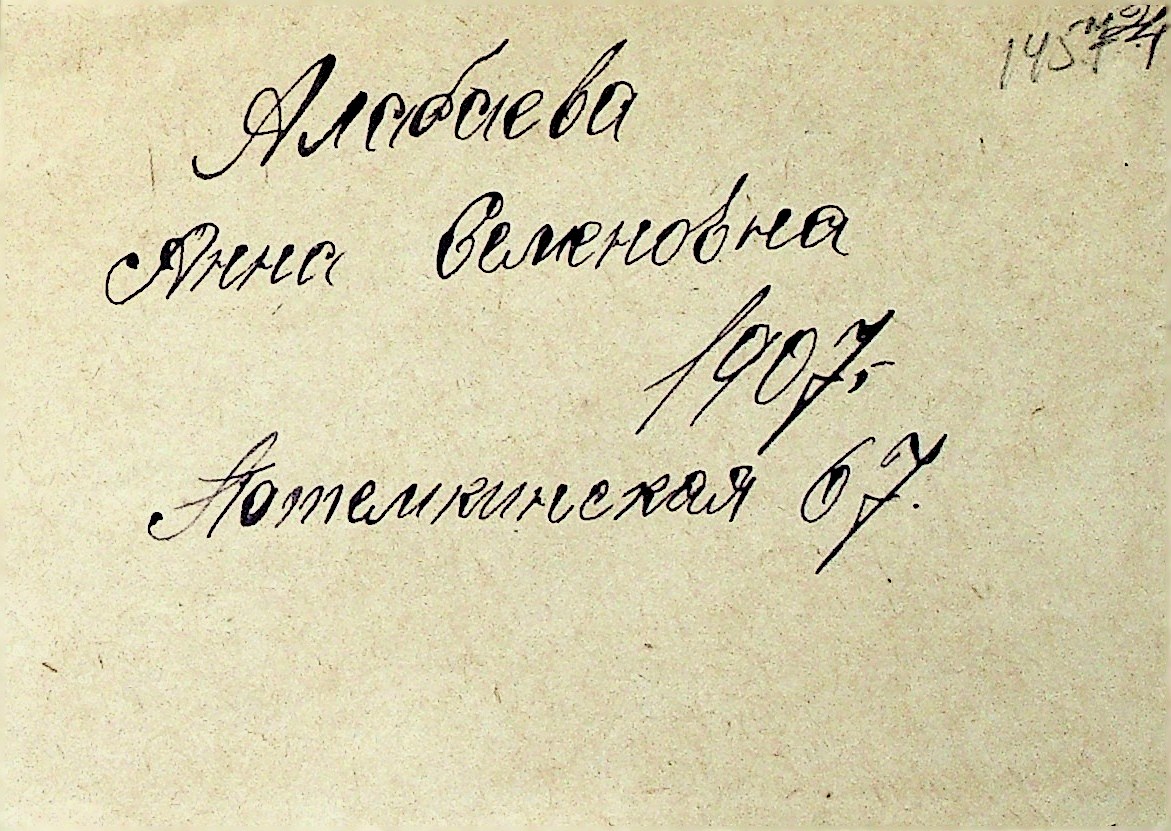 Алабаева
Анна Семеновна
1907,-
Потемкинская 67.